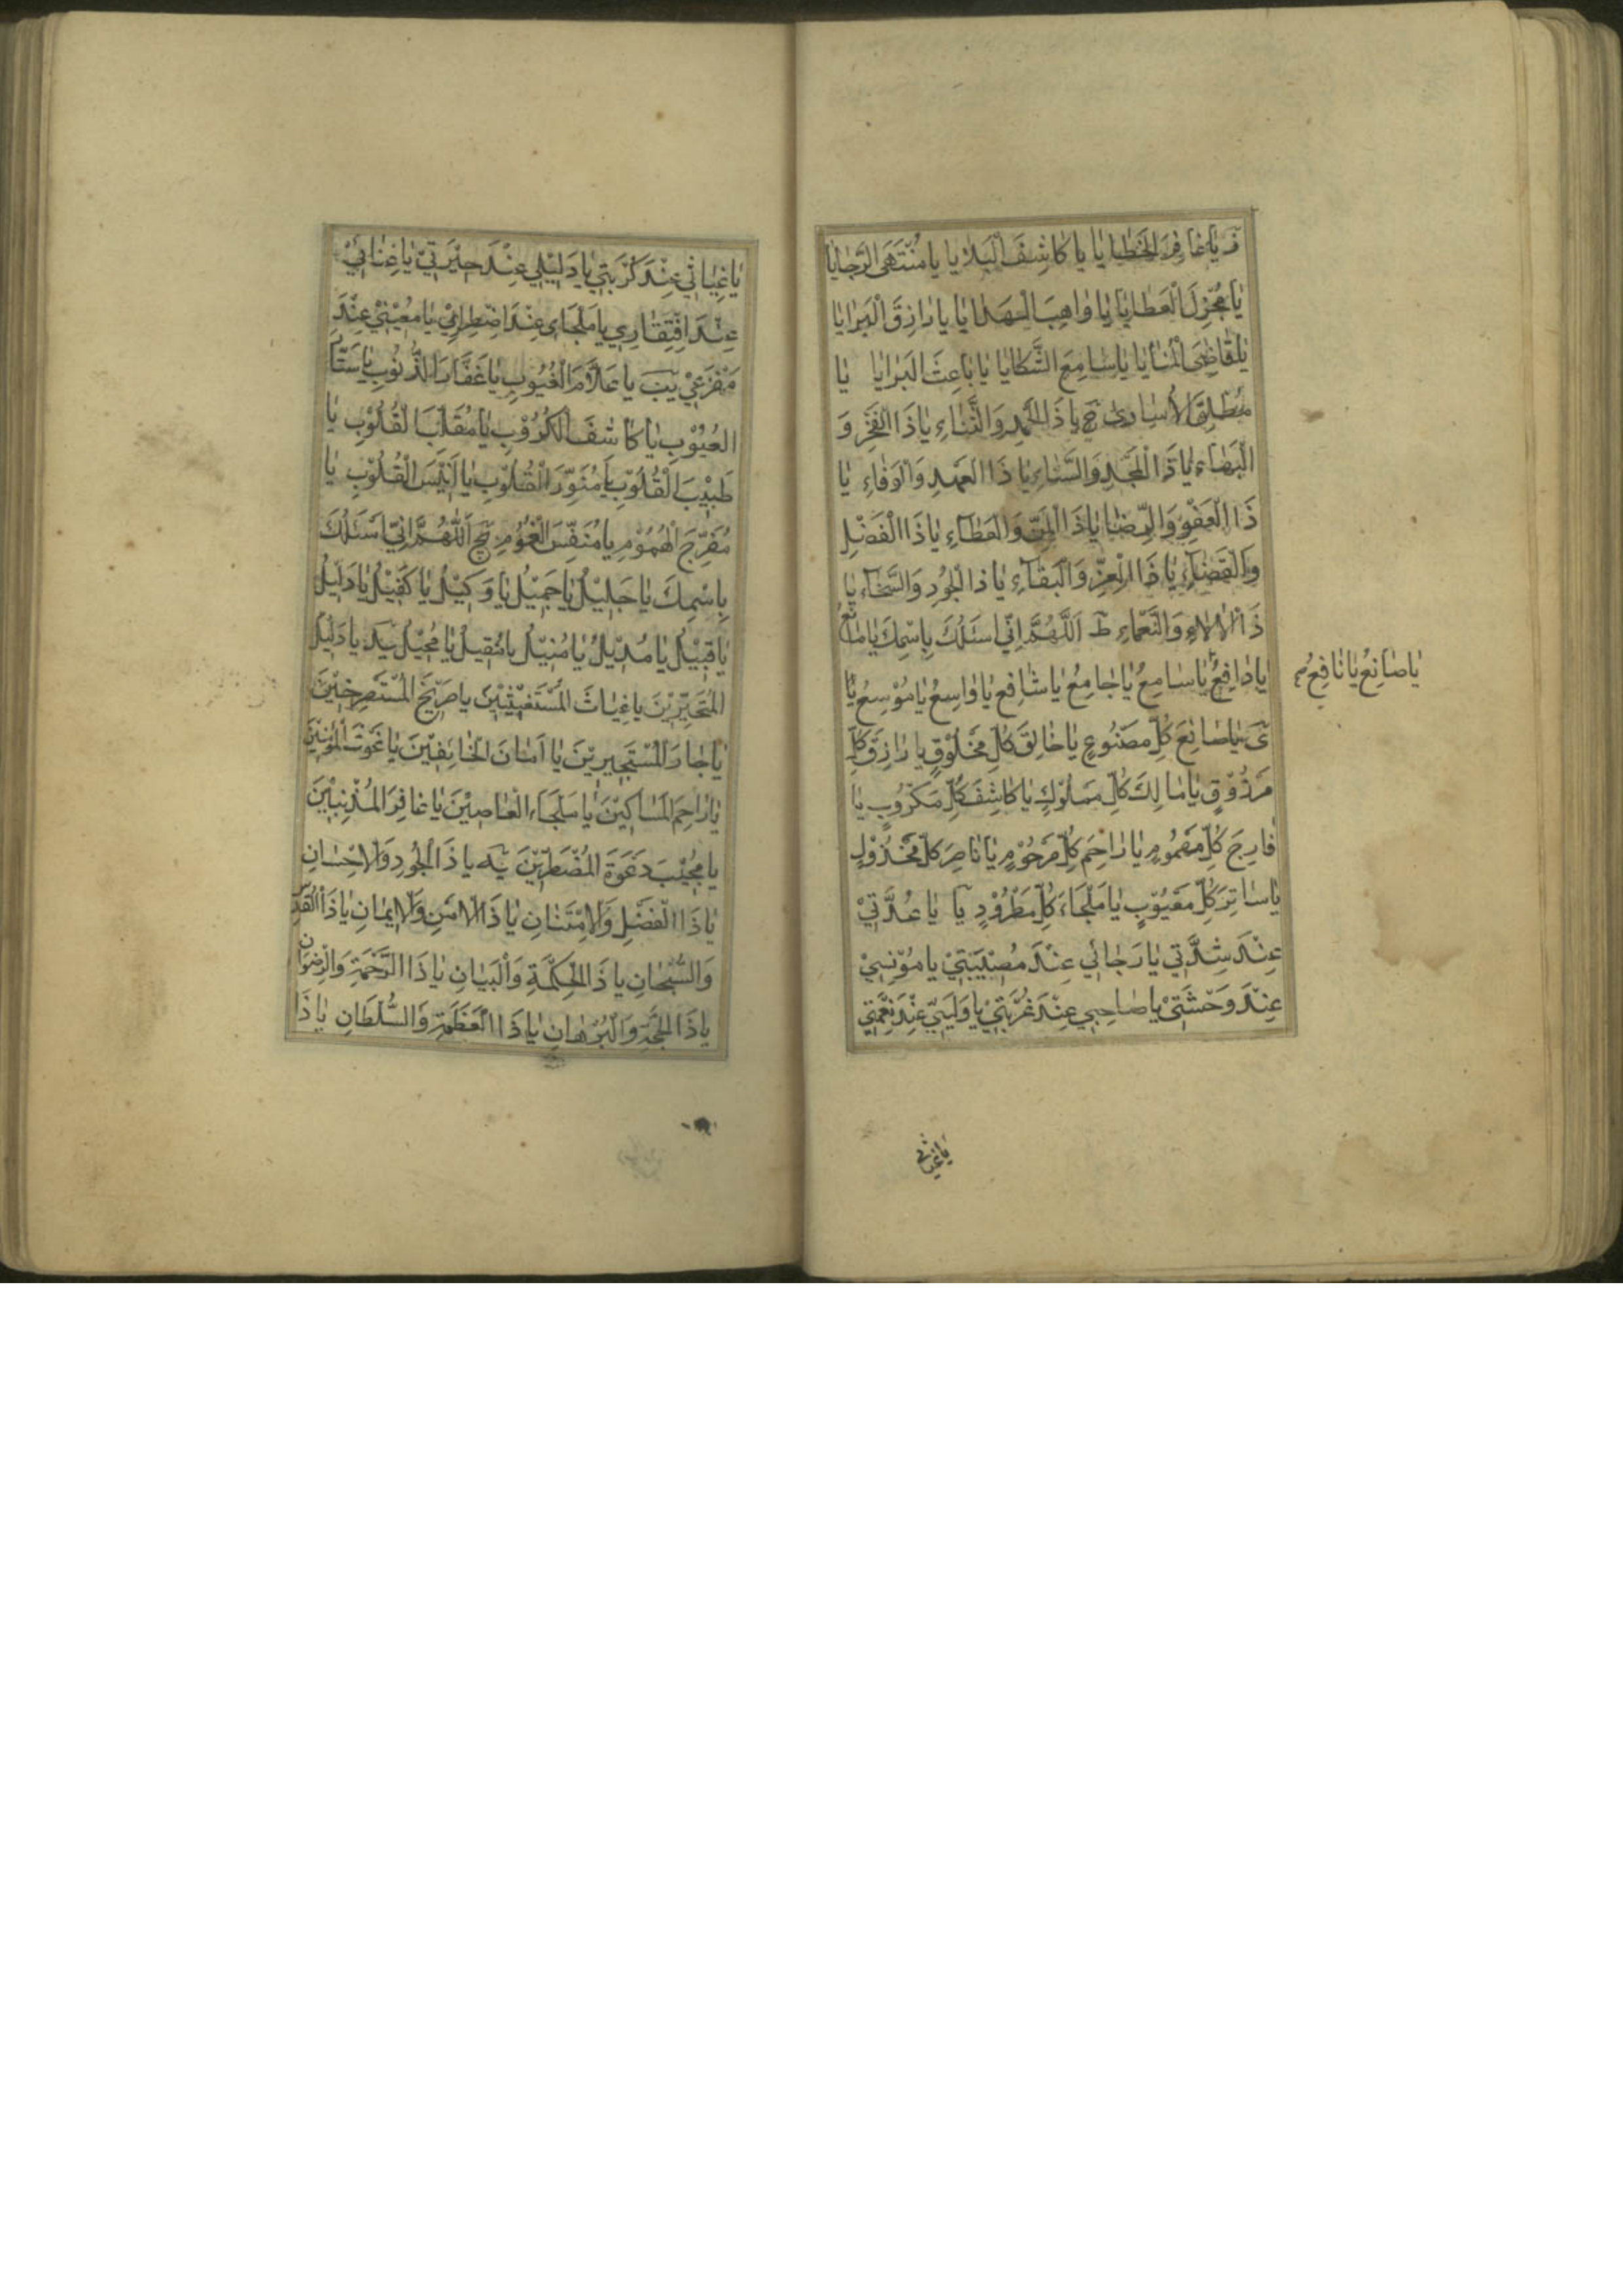 يا غافِرَ الخَطايا يا كاشِفَ الْبَلايا يا مُنْتَهَى الرَّجايا
يا مُجْزِلَ الْعَطايا يا واهِبَ الْهَدايا يا رازِقَ الْبَرايا
يا قاضِيَ الْمَنايا يا سامِعَ الشَّكايا يا باعِثَ الْبَرايا يا
مُطْلِقَ الْأُسارى ح يا ذَا الْحَمْدِ وَالثَّناءِ يا ذَا الْفَخْرِ وَ
الْبَهاءِ يا ذَا الْمَجْدِ وَالسَّناءِ يا ذَا الْعَهْدِ وَالْوَفاءِ يا
ذَا الْعَفْوِ وَالرِّضا يا ذَا الْمَنِّ وَالْعَطاءِ يا ذَا الْفَضْلِ
وَالْقَضاءِ يا ذَا الْعِزِّ وَالْبَقاءِ يا ذَا الْجُودِ وَالسَّخاءِ يا
ذَا الْآلاءِ وَالنَّعْماءِ ط اَللّٰهُمَّ اِنّي اَسْئَلُكَ بِاسْمِكَ يا مانِعُ
يا دافِعُ يا سامِعُ يا جامِعُ يا شافِعُ يا واسِعُ يا مُوْسِعُ يا
يا صانِعُ يا نافِعُ
ى يا صانِعَ كُلِّ مَصْنُوعٍ يا خالِقَ كُلِّ مَخْلُوْقٍ يا رازِقَ كُلِّ
مَرْزُوْقٍ يا مالِكَ كُلِّ مَمْلُوْكٍ يا كاشِفَ كُلِّ مَكْرُوبٍ يا
فارِجَ كُلِّ مَهْمُومٍ يا راحِمَ كُلِّ مَرْحُوْمٍ يا ناصِرَ كُلِّ مَخْذُوْلٍ
يا ساتِرَ كُلِّ مَعْيُوْبٍ يا مَلْجَاءَ كُلِّ مَطْرُوْدٍ يآ يا عُدَّتِيْ
عِنْدَ شِدَّتي يا رَجائي عِنْدَ مُصِيْبَتِيْ يا مُوْنِسِيْ
عِنْدَ وَحْشَتِيْ يا صاحِبي عِنْدَ غُرْبَتِيْ يا وَلِيّي عِنْدَ نِعْمَتي
يا غياثي
يا غِياثي عِنْدَ كُرْبَتي يا دَلِيْلي عِنْدَ حَيْرَتِيْ يا غِنائِيْ
عِنْدَ افْتِقاري يا مَلْجَاى عِنْدَ اضْطِراري يا مُعِيْنِيْ عِنْدَ
مَفْزَعِيْ يب يا عَلاَّمَ الْغُيُوْبِ يا غَفَّارَ الذُّنُوْبِ يا سَتَّارَ
الْعُيُوْبِ يا كاشِفَ الْكُرُوْبِ يا مُقَلِّبَ الْقُلُوْبِ يا
طَبِيْبَ الْقُلُوْبِ يا مُنَوِّرَ الْقُلُوْبِ يا اَنِيْسَ الْقُلُوْبِ يا
مُفَرِّجَ الْهُمُوْمِ يا مُنَفِّسَ الْغُمُوْمِ يج اَللّٰهُمَّ اِنّي اَسْئَلُكَ
بِاسْمِكَ يا جَلِيْلُ يا جَمِيْلُ يا وَكِيْلُ يا كَفِيْلُ يا دَلِيْلُ
يا قَبِيْلُ يا مُدِيْلُ يا مُنِيْلُ يا مُقِيْلُ يا مُحِيْلُ يد يا دَلِيْلَ
الْمُتَحَيِّرِيْنَ يا غِياثَ الْمُسْتَغِيْثِيْنَ يا صَرِيْخَ الْمُسْتَصْرِخِيْنَ
يا جارَ الْمُسْتَجِيرِيْنَ يا اَمانَ الْخائِفِيْنَ يا عَوْنَ الْمُؤْمِنِيْنَ
يا راحِمَ الْمَساكِيْنَ يا مَلْجَاءَ الْعاصِيْنَ يا غافِرَ الْمُذْنِبِيْنَ
يا مُجِيْبَ دَعْوَةَ الْمُضْطَرِّيْنَ يه يا ذَا الْجُودِ وَالْاِحْسانِ
يا ذَا الْفَضْلِ وَالْاِمْتِنانِ يا ذَا الْاَمْنِ وَالْاِيمانِ يا ذَا الْقُدْسِ
وَالسُّبْحانِ يا ذَا الْحِكْمَةِ وَالْبَيانِ يا ذَا الرَّحْمَةِ وَالرِّضْوانِ
يا ذَا الْحُجَّةِ وَالْبُرْهانِ يا ذَا الْعَظَمَةِ وَالسُّلْطَانِ يا ذَا